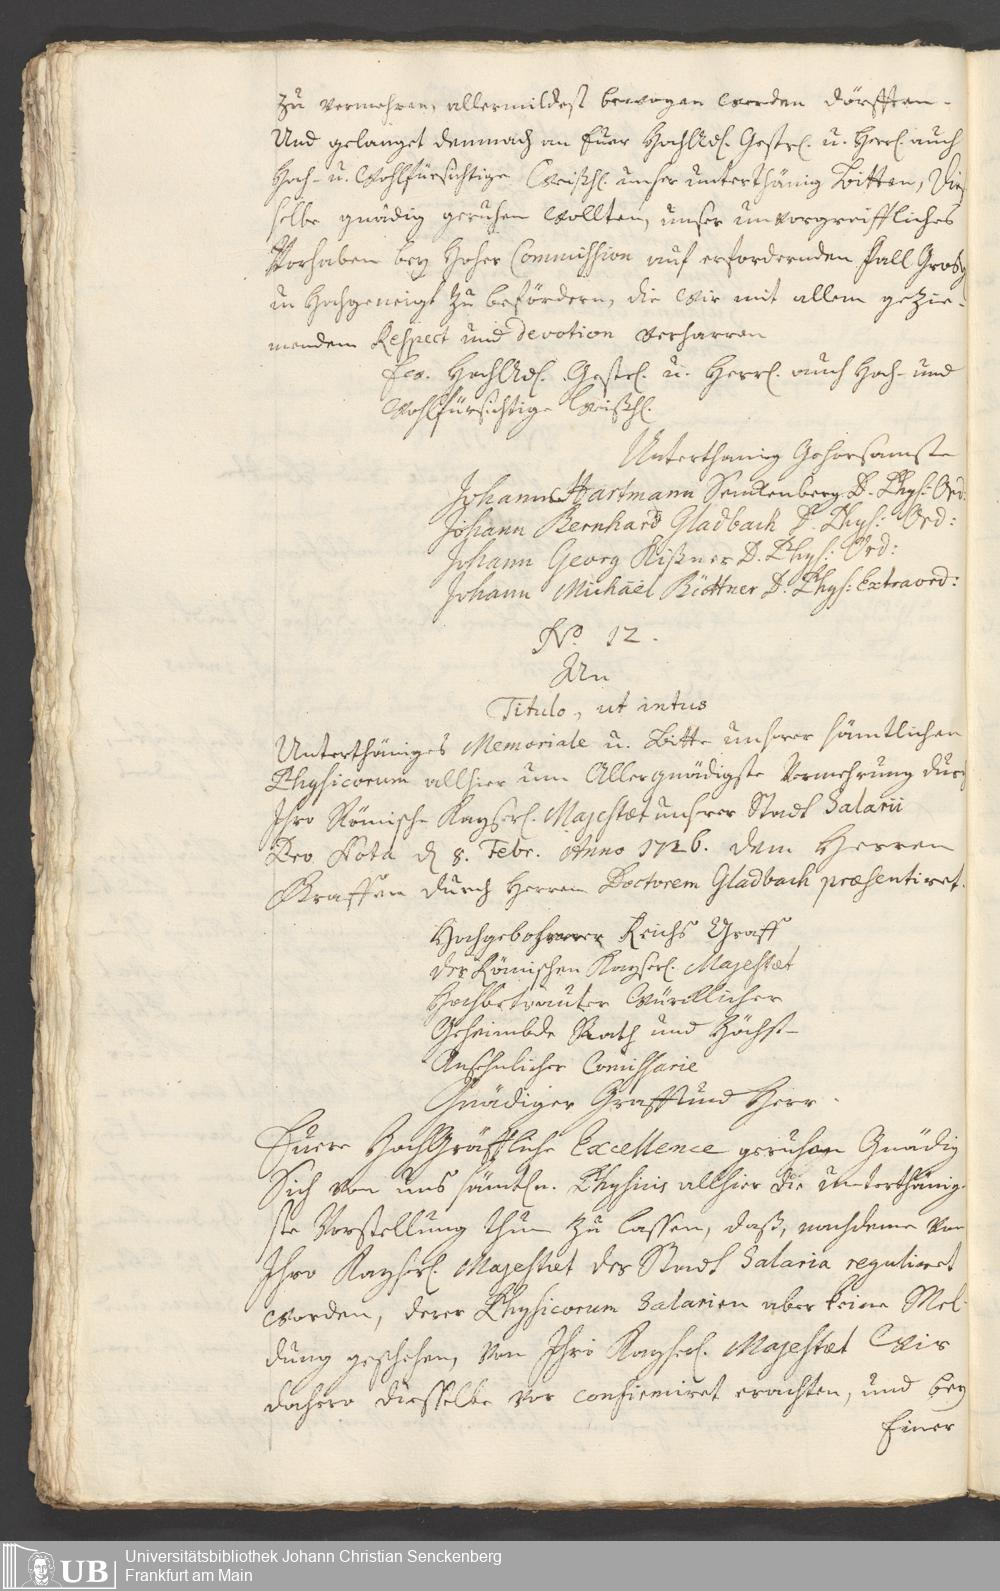 zu vermehren, allermildest bewogen werden dörfften.
Und gelanget demnach an Euer HochAdl. Gestr. u. Herrl. auch
Hoch- u. Wohlfürsichtige Weißh. unser unterthänig Bitten, Die-
selbe gnädig geruhen wollten, unser unvorgreiffliches
Vorhaben bey Hoher Commission auf erfordernden Fall Gros-
u. Hochgeneigt zu befördern, die Wir mit allem gezie-
mendem Respect und devotion verharren
Ew. HochAdl. Gestr. u. Herrl. auch Hoch- und
Wohlfürsichtige Weißh.
Unterthänig Gehorsamste
Johann Hartmann Senckenberg D. Phys: Ord:
Johann Bernhard Gladbach D. Phys: Ord:
Johann Georg Kißner D. Phys: Ord:
Johann Michäel Büttner D. Phys: Extraord:
No. 12.
An
Titulo, ut intus
Unterthäniges Memoriale u. Bitte unserer sämtlichen
Physicorum allhier um Allergnädigste Vermehrung durch
Ihro Römische Kayserl. Majestæt unserer Stadt Salarii
Pro Nota d 8. Febr. Anno 1726. dem Herren
Graffen durch Herren Doctorem Gladbach præsentiret.
Hochgebohrner Reichs Graff
der Römischen Kayserl. Majestæt
Hochbetrauter Würcklicher
Geheimbde Rath und Höchst-
Ansehnlicher Comissarie
Gnädiger Graff und Herr.
Euere HochGräffliche Excellence geruhen Gnädig
Sich von uns sämtln. Physicis allhier die unterthänig-
ste Vorstellung thun zu lassen, daß, nachdeme von
Ihro Kayserl. Majestæt der Stadt Salaria reguliret
worden, derer Physicorum Salarien aber keine Mel-
dung geschehen, von Ihro Kayserl. Majestæt Wir
dahero diesselbe vor confirmiret erachten, und bey
Einer
Universitätsbibliothek Johann Christian Senckenberg
UB Frankfurt am Main